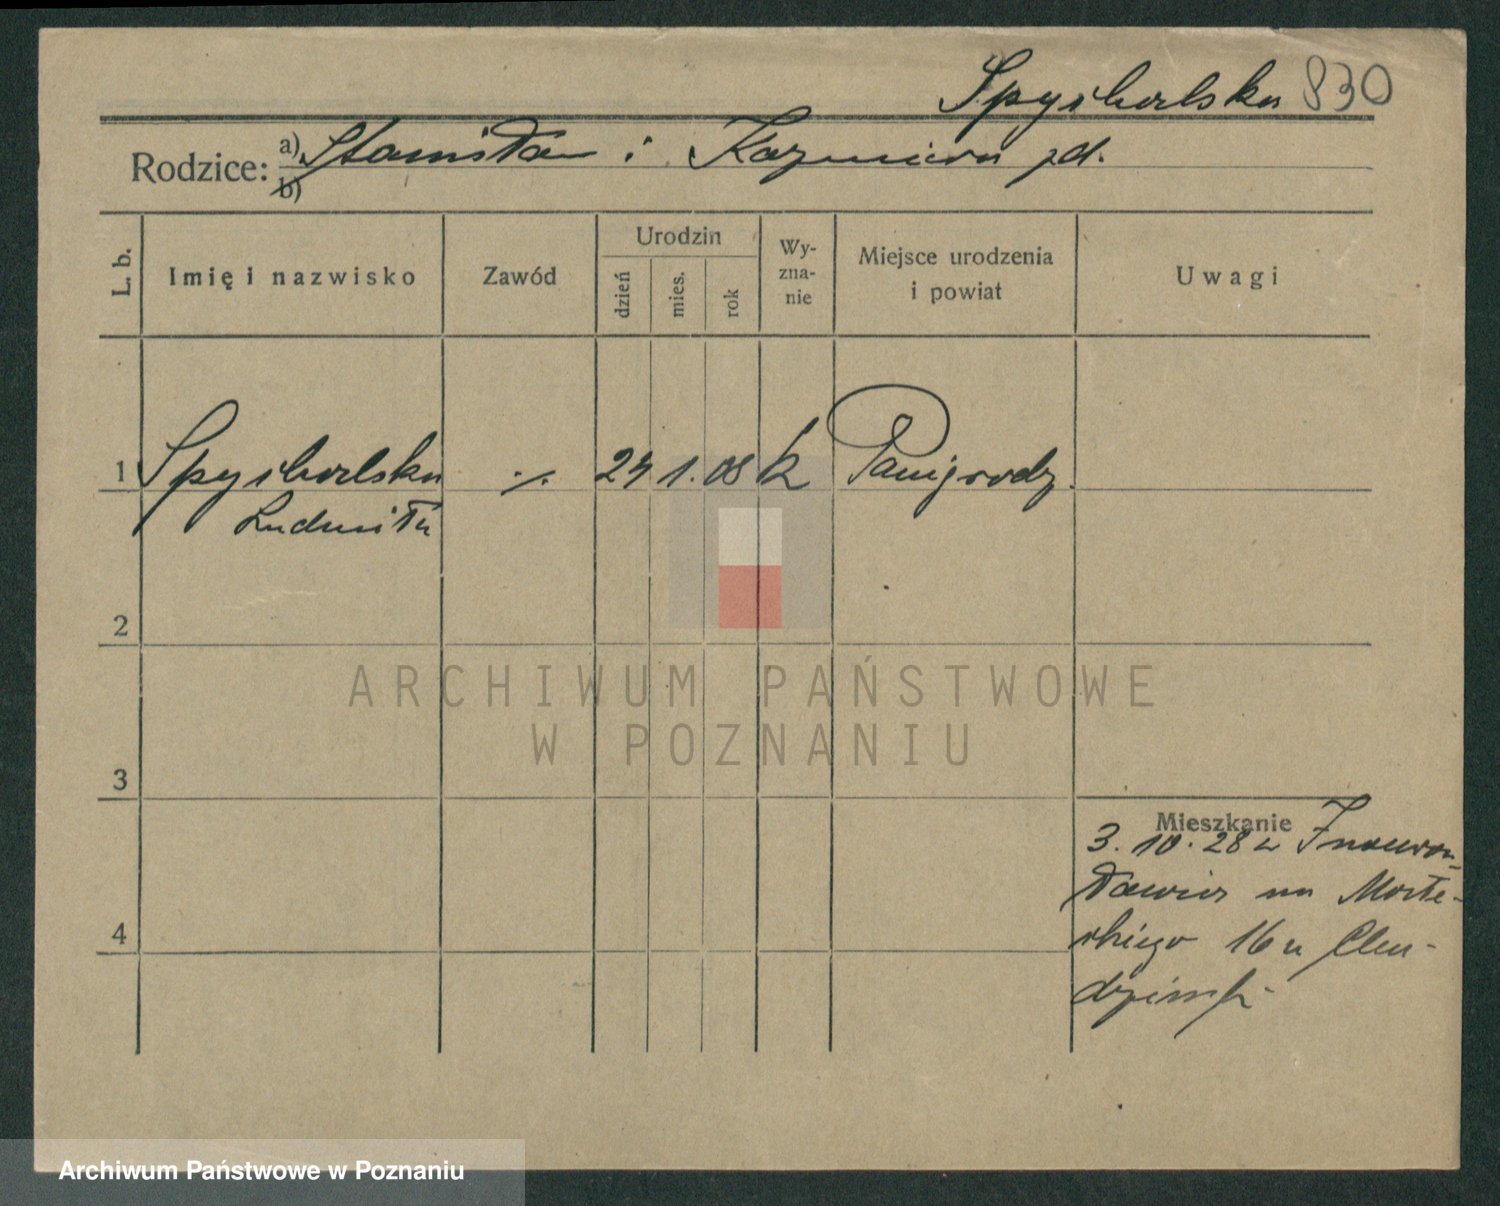 Spychalska 830
Rodzice: a) Stanisław i Kazmiera zd.
b)
L. b.
Imię i nazwisko
Zawód
Urodzin
dzień
mies.
rok
Wy-
zna-
nie
Miejsce urodzenia
i powiat
Uwagi
1 Spychalska ./. 24 1. 08 k Panigrodz.
Ludmiła
2
ARCHIWUM PAŃSTWOWE
W POZNANIU
3
Mieszkanie
3. 10. 28 w Inowro-
4
16 u
Archiwum Państwowe w Poznaniu